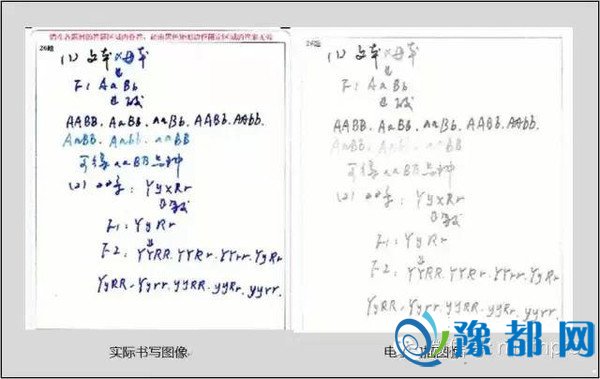 请在各题目的答题区域内作答，超出黑色矩形边框限定区域的答案无效
26题
(1) 父本×母本
F1 AaBb
AABB. AaBB. aaBb. AABb. AAbb.
AaBB. Aabb. aaBB
可得aaBB品种
(2) 四季：YyxRr
F1：YyRr
F2：YYRR. YYRr. YYrr. YyRr
YyRR. Yyrr. yyRR. yyRr. yyrr.
实际书写图像
26题
(1) 父本×母本
F1 AaBb
AABB. AaBB. aaBb. AABb. AAbb.
AaBB. Aabb. aaBB
可得aaBB品种
(2) YyxRr
F1：YyRr
F2：YYRR. YYRr. YYrr. YyRr
YyRR. Yyrr. yyRR. yyRr. yyrr.
豫都网